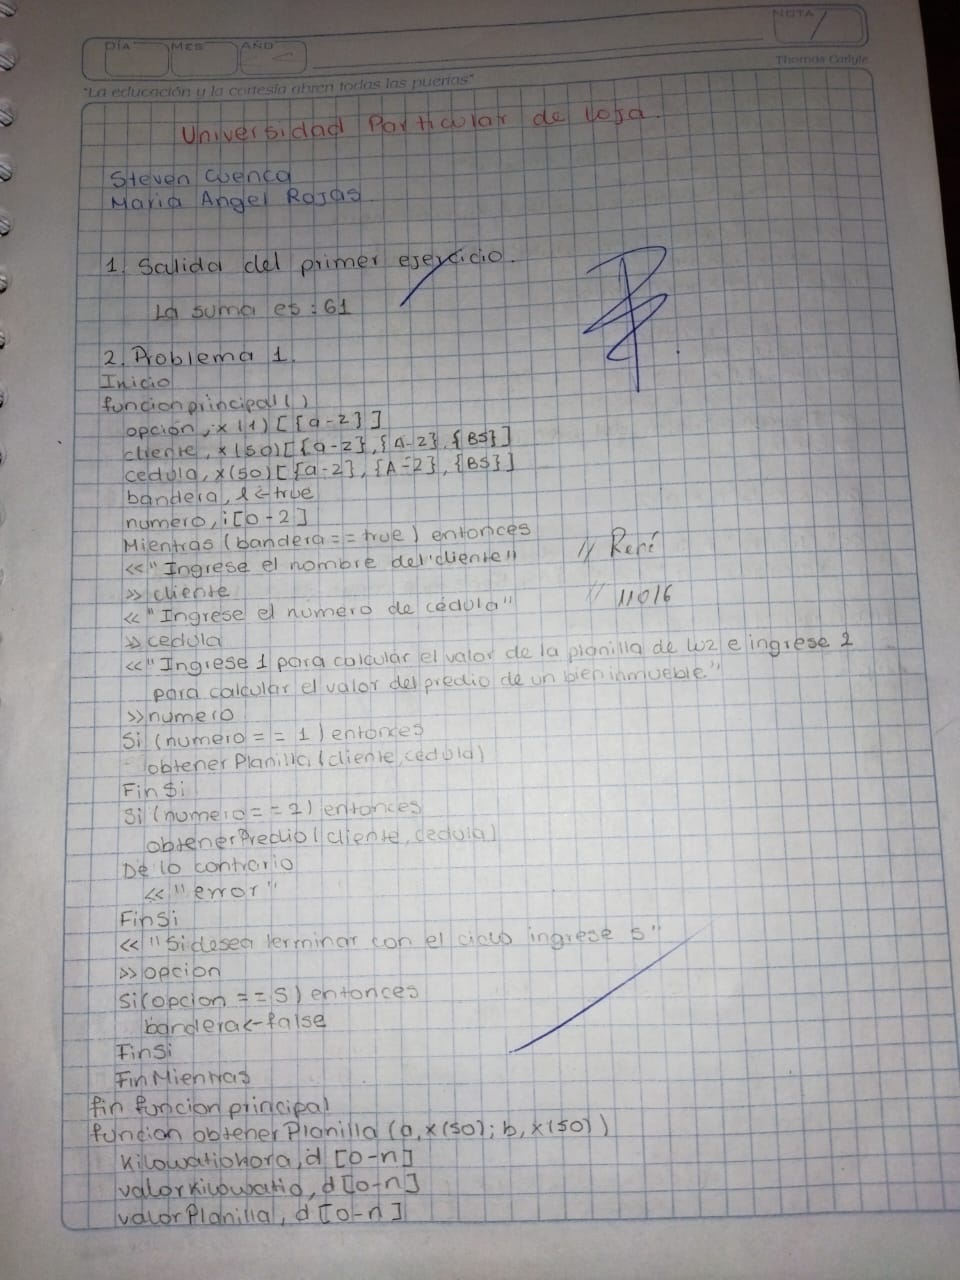 NOTA
DÍA MES AÑO
Thomas Carlyle
"La educación y la cortesía abren todas las puertas"
Universidad Particular de Loja.
Steven Cuenca
Maria Angel Rojas.
1. Salida del primer ejercicio.
La suma es : 61
2. Problema 1.
Inicio
funcion principal ( )
opción, x (1) [ {a-z} ]
cliente, x (50) [ {a-z}, {A-Z}, {BS} ]
cedula, x (50) [ {a-z}, {A-Z}, {BS} ]
bandera, l <- true
numero, i [0-2]
Mientras (bandera == true) entonces
<< "Ingrese el nombre del cliente" // René
>> cliente
<< "Ingrese el numero de cédula" // 11016
>> cedula
<< "Ingrese 1 para calcular el valor de la planilla de luz e ingrese 2
para calcular el valor del predio de un bien inmueble"
>> numero
Si (numero == 1) entonces
obtener Planilla (cliente, cedula)
Fin Si
Si (numero == 2) entonces
obtener Predio (cliente, cedula)
De lo contrario
<< "error"
Fin Si
<< "Si desea terminar con el ciclo ingrese s"
>> opcion
Si (opcion == S) entonces
bandera <- false
Fin Si
Fin Mientras
fin funcion principal
funcion obtener Planilla (a, x (50); b, x (50))
Kilowatiohora, d [0-n]
valorKilowatio, d [0-n]
valor Planilla, d [0-n]